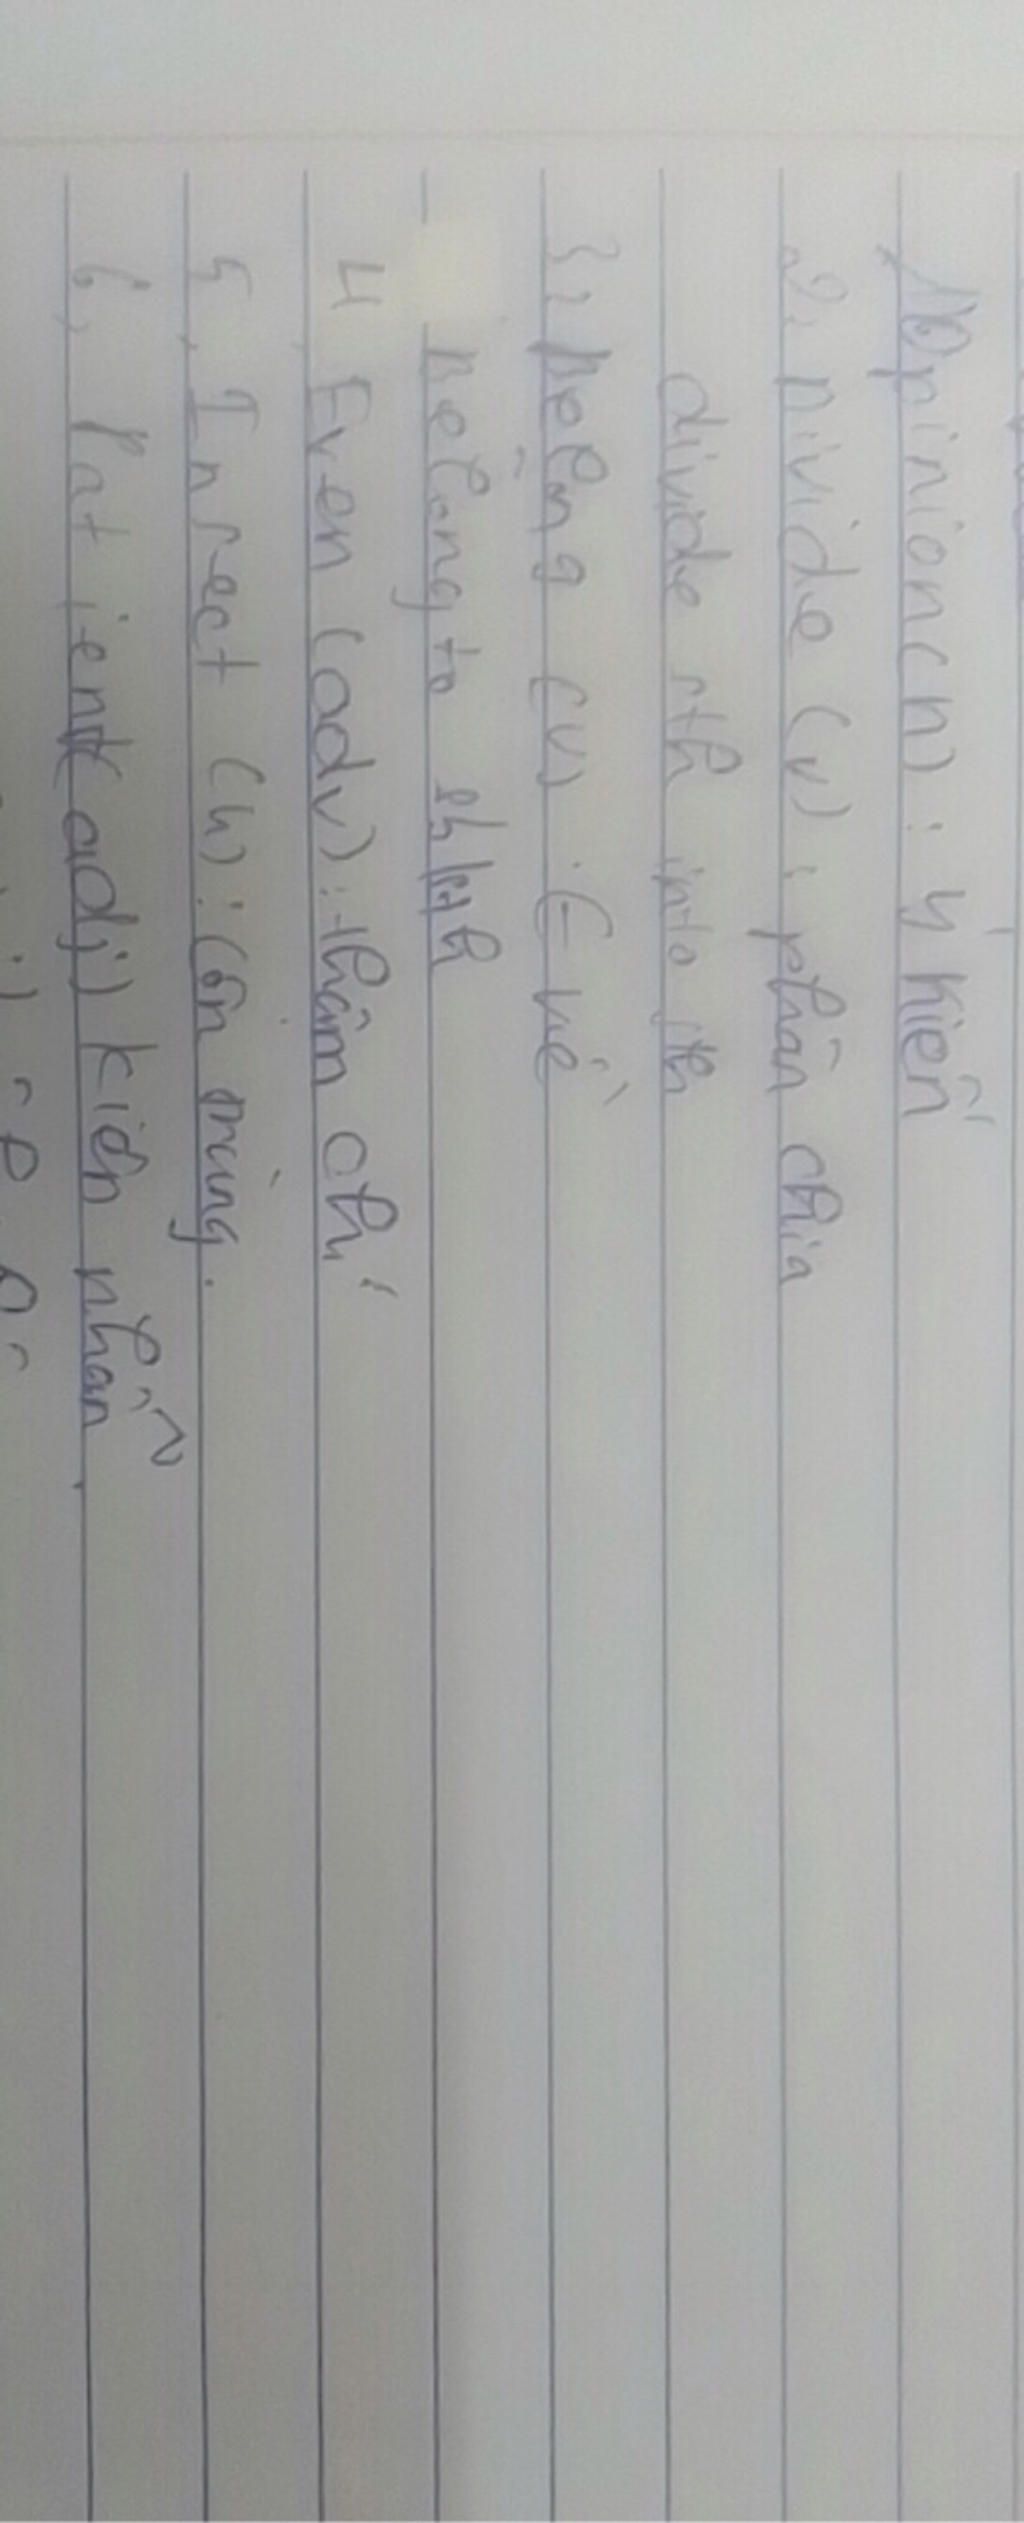 1, Opinion(n): ý kiến
2, Divide (v): phân chia
divide sth into sth
3, Belong (v): ∈ về
Belong to sb/sth
4 Even (adv): thậm chí
5, Insect (n): côn trùng.
6, Patient(adj) kiên nhẫn.